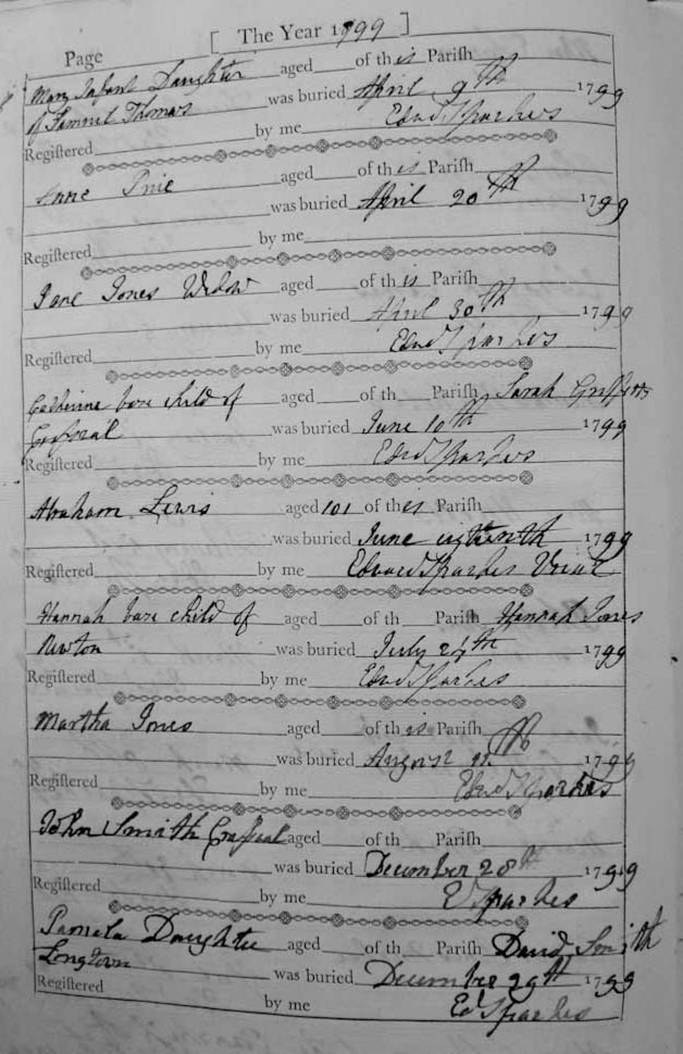 Page [ The Year 1799 ]
Mary Infant Daughter aged of this Parish
of Samuel Thomas was buried April 9th 1799
Registered by me Edwd Sparkes
Anne aged of this Parish
was buried April 20th 1799
Registered by me
Jane Jones Widow aged of this Parish
was buried April 30th 1799
Registered by me Edwd Sparkes
Catherine base child of aged of th Parish Sarah Griffiths
Craswal was buried June 10th 1799
Registered by me Edwd Sparkes
Abraham Lewis aged 101 of this Parish
was buried June 1799
Registered by me Edward Sparkes Vicar
Hannah base child of aged of th Parish Hannah Jones
Newton was buried July 24th 1799
Registered by me Edwd Sparkes
Martha Jones aged of this Parish
was buried August 11th 1799
Registered by me Edwd Sparkes
John Smith Craswal aged of th Parish
was buried December 28th 1799
Registered by me E Sparkes
Pamela Daughter aged of th Parish David Smith
Longtown was buried December 29th 1799
Registered by me Ed Sparkes